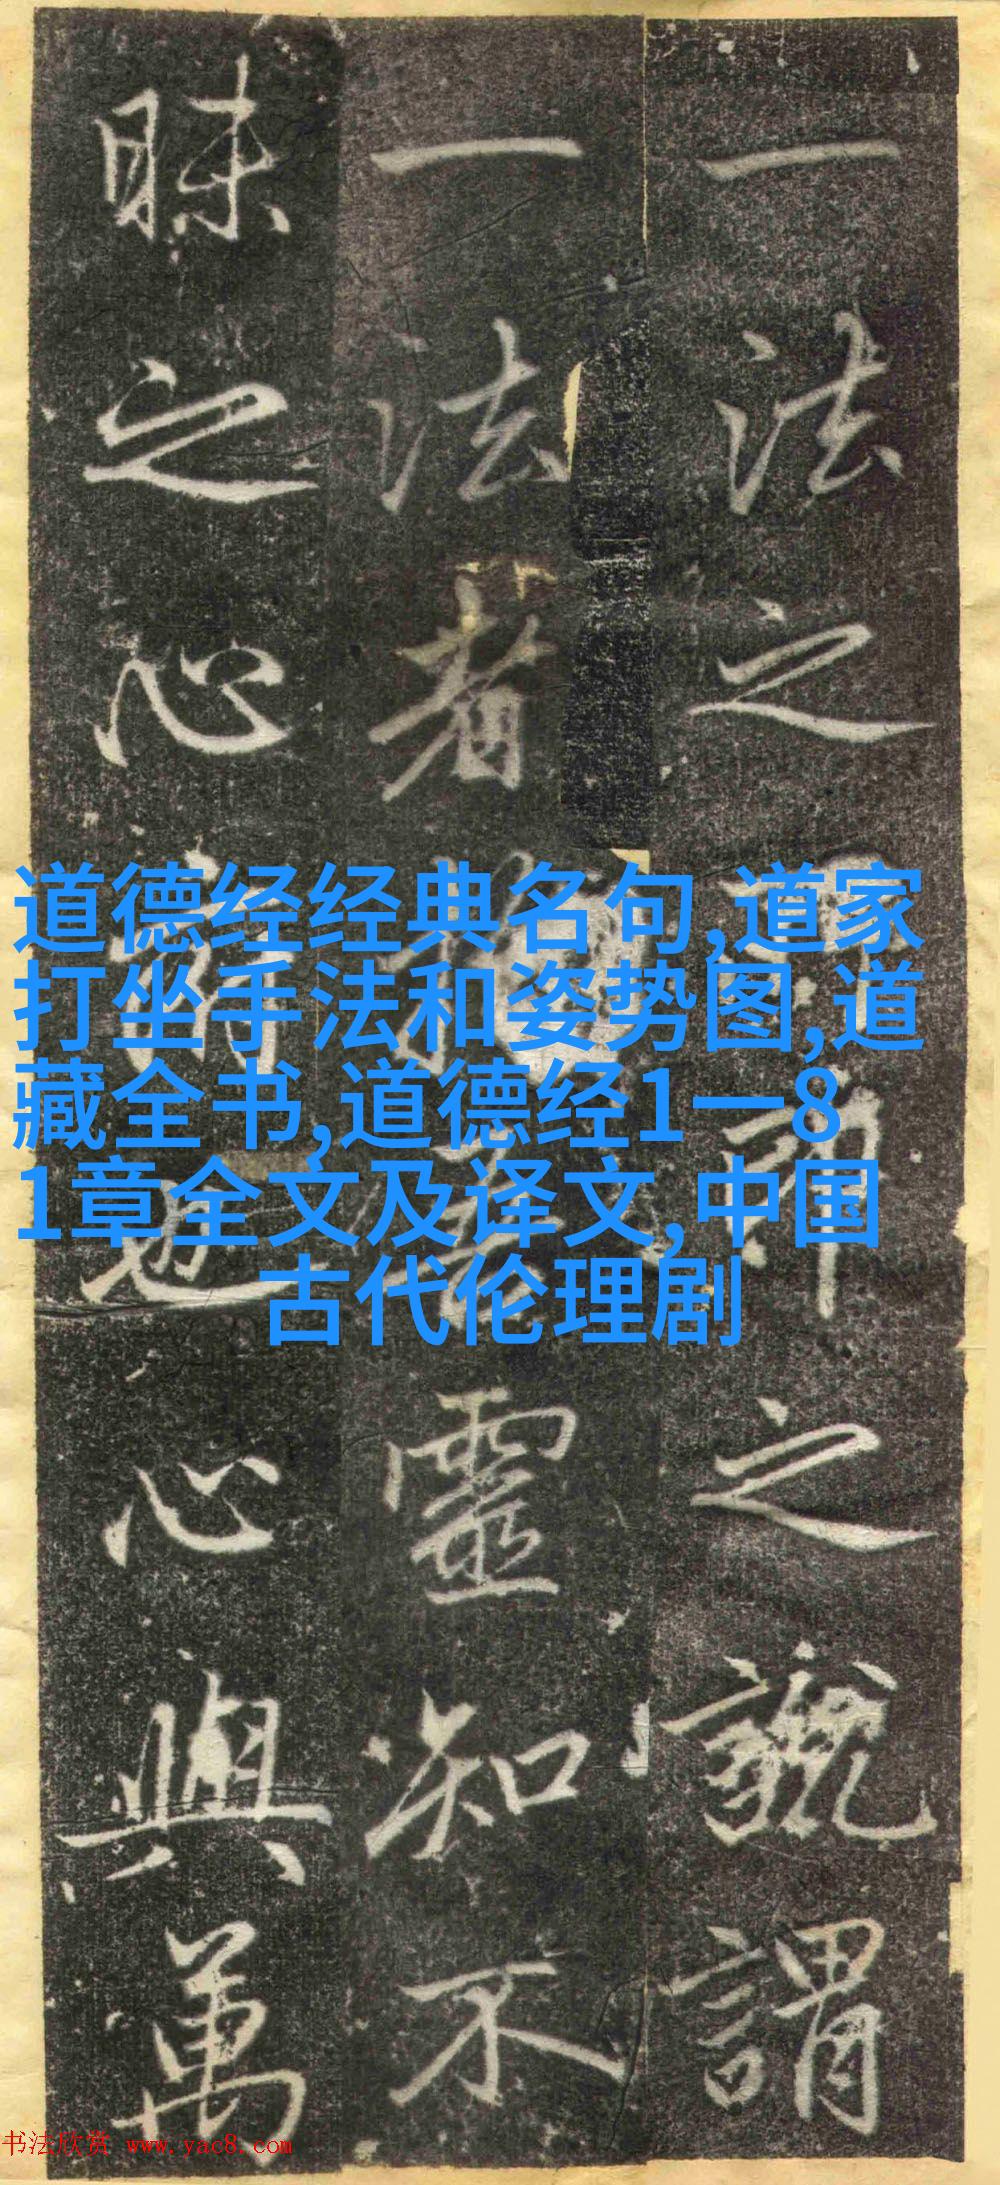 一法之之號謂
一法者靈知不
昧之心也心與萬
道德经经典名句,道家
打坐手法和姿势图,道
藏全书,道德经1一8
1章全文及译文,中国
古代伦理剧
书法欣赏 www.yac8.com